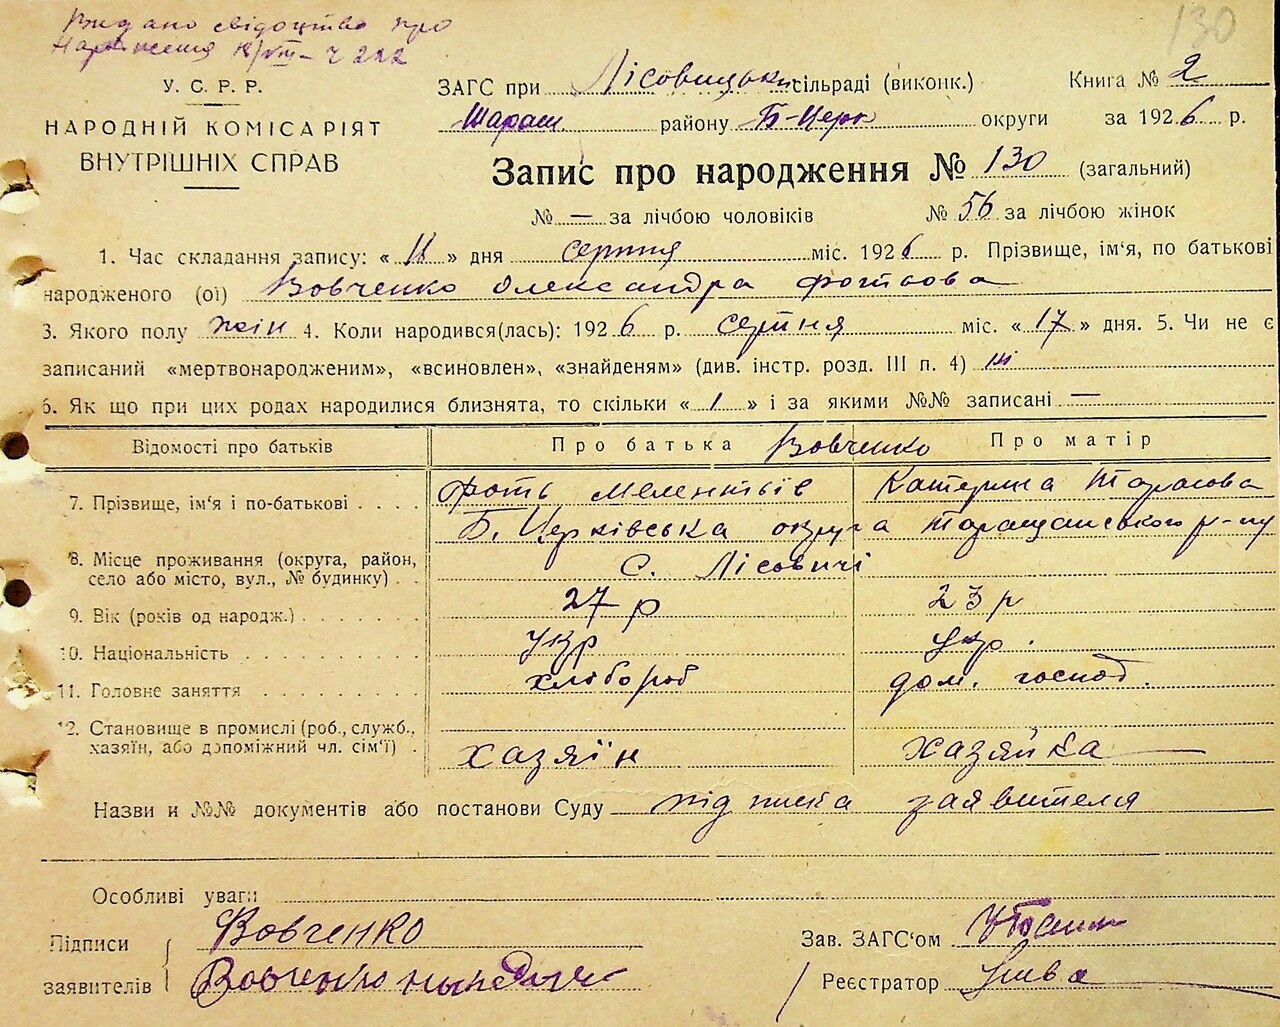 Видано свідоцтво про
Народження 18/VIII – Ч 222
130
У. С. Р. Р.
НАРОДНІЙ КОМІСАРІЯТ
ВНУТРІШНІХ СПРАВ
ЗАГС при Лісовицьки сільраді (виконк.) Книга № 2
Таращ. району Б-Церк округи за 1926 р.
Запис про народження № 130 (загальний)
№ — за лічбою чоловіків № 56 за лічбою жінок
1. Час складання запису: « 18 » дня серпня міс. 1926 р. Прізвище, ім'я, по батькові
народженого (ої) Вовченко Олександра Фотьова
3. Якого полу жін 4. Коли народився(лась): 1926 р. серпня міс. « 17 » дня. 5. Чи не є
записаний «мертвонародженим», «всиновлен», «знайденям» (див. інстр. розд. III п. 4) ні
6. Як що при цих родах народилися близнята, то скільки « 1 » і за якими №№ записані —
Відомості про батьків Про батька Вовченко Про матір
7. Прізвище, ім'я і по-батькові . . . . Фоть Мелентьїв Катерина Тарасова
Б. Церківська округа Таращанського р-ну
8. Місце проживання (округа, район,
село або місто, вул., № будинку) . . с. Лісовичі
9. Вік (років од народж.) . . . . . . . 27 р 23 р
10. Національність . . . . . . . . . . укр укр.
11. Головне заняття . . . . . . . . . хлібороб дом. господ.
12. Становище в промислі (роб., служб.,
хазяїн, або допоміжний чл. сім'ї) . хазяїн хазяйка
Назви и №№ документів або постанови Суду підписка заявителя
Особливі уваги
Підписи Вовченко Зав. ЗАГС'ом
заявителів Вовченко Реєстратор